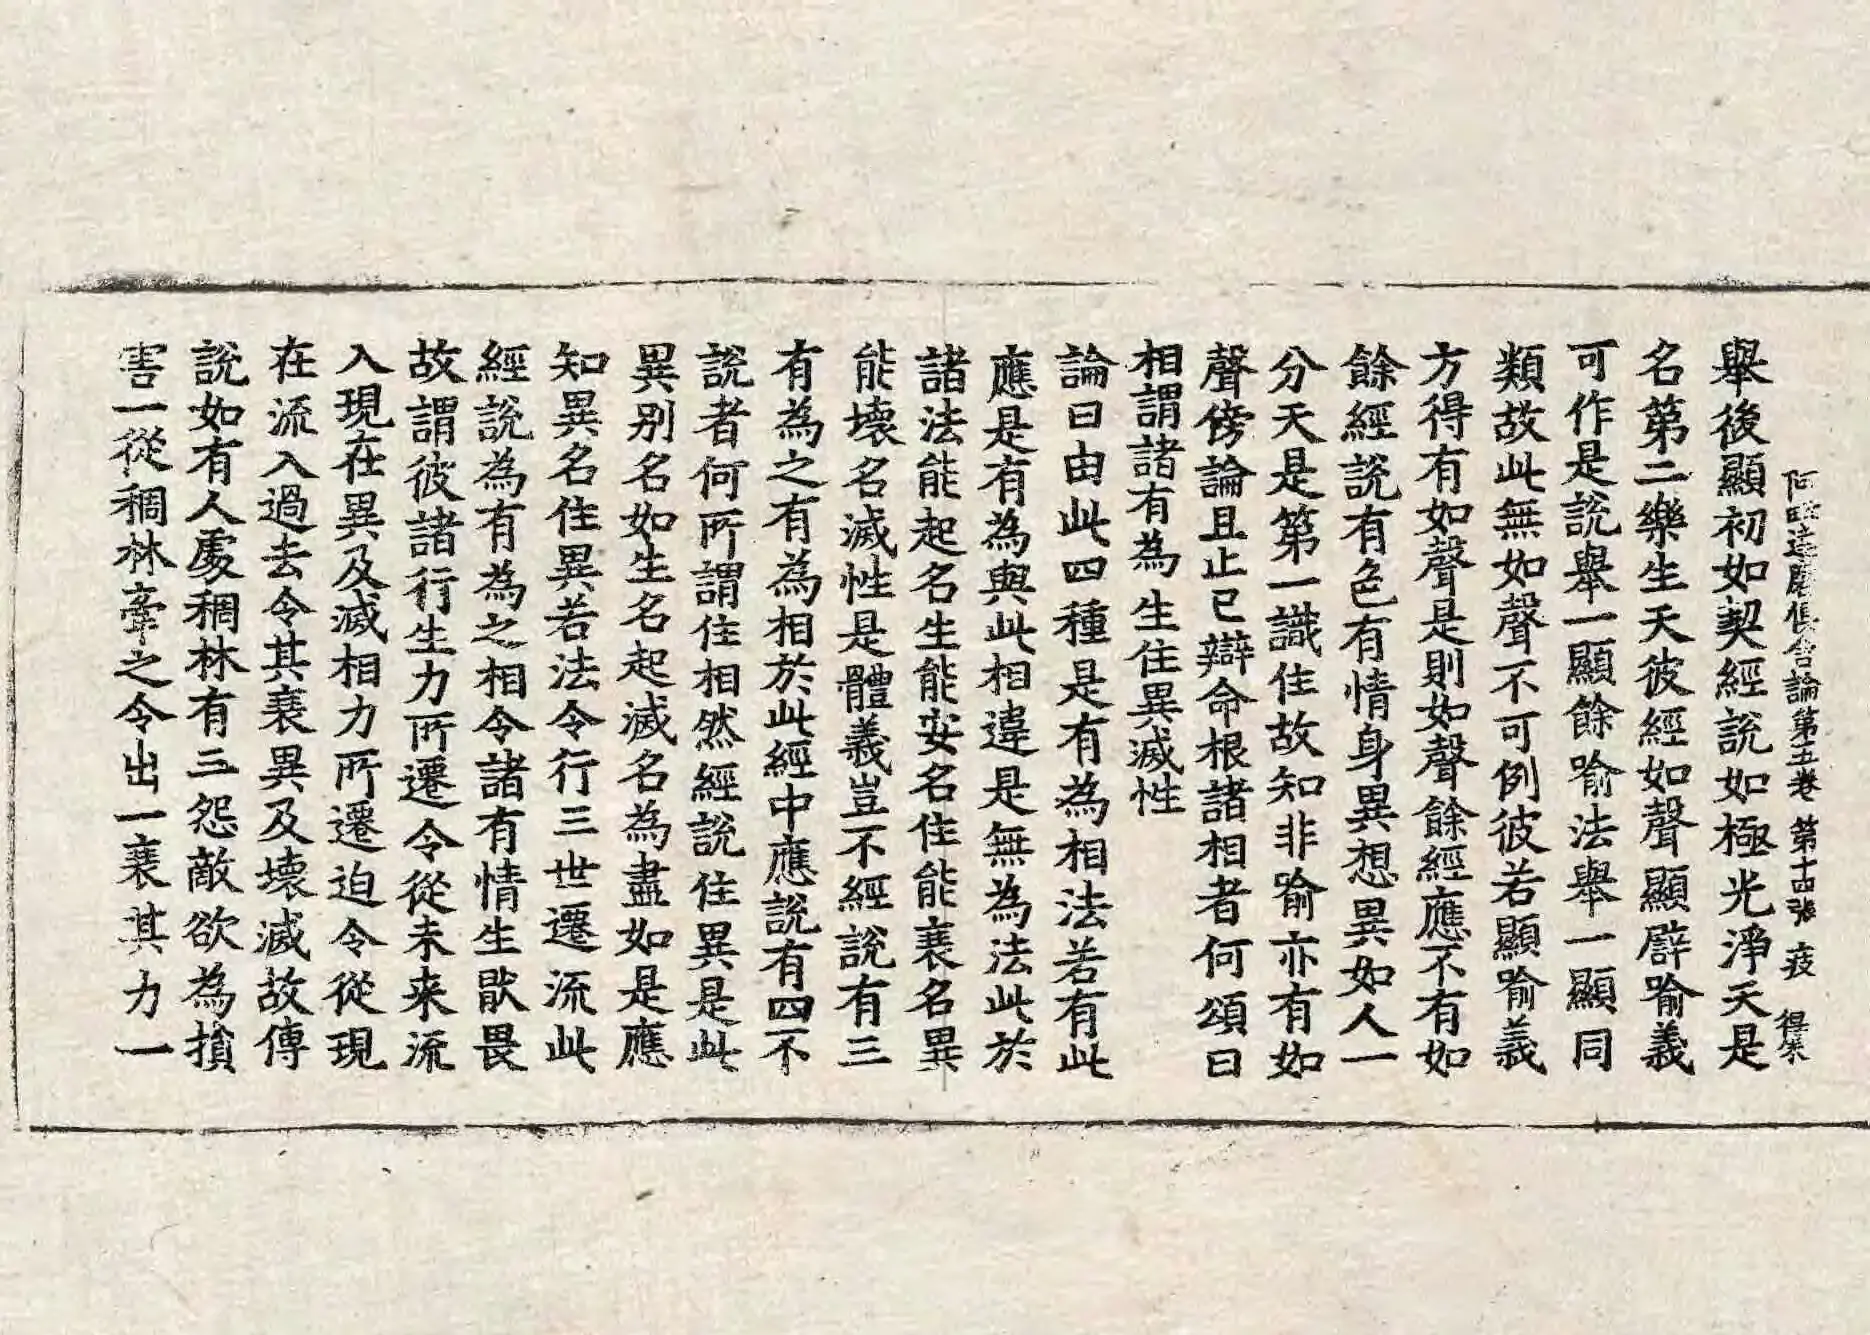 阿毗達磨俱舍論第五卷 第十四張 疲
舉後顯初如契經說如極光淨天是
名第二樂生天彼經如聲顯辟喻義
可作是說舉一顯餘喻法舉一顯同
類故此無如聲不可例彼若顯喻義
方得有如聲是則如聲餘經應不有如
餘經說有色有情身異想異如人一
分天是第一識住故知非喻亦有如
聲傍論且止已辯命根諸相者何頌曰
相謂諸有為生住異滅性
論曰由此四種是有為相法若有此
應是有為與此相違是無為法此於
諸法能起名生能安名住能衰名異
能壞名滅性是體義豈不經說有三
有為之有為相於此經中應說有四不
說者何所謂住相然經說住異是此
異別名如生名起滅名為盡如是應
知異名住異若法令行三世遷流此
經說為有為之相令諸有情生猒畏
故謂彼諸行生力所遷令從未来流
入現在異及滅相力所遷迫令從現
在流入過去令其衰異及壞滅故傳
說如有人處稠林有三怨敵欲為損
害一從稠林牽之令出一衰其力一